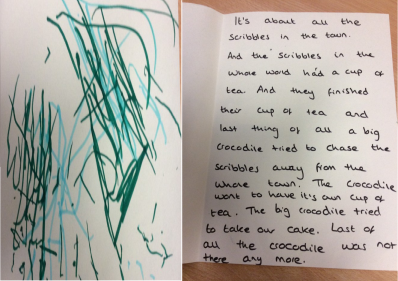 It's about all the
scribbles in the town.
And the scribbles in the
whole world had a cup of
tea. And they finished
their cup of tea and
last thing of all a big
crocodile tried to chase the
scribbles away from the
whole town. The crocodile
want to have it's own cup of
tea. The big crocodile tried
to take our cake. Last of
all the crocodile was not
there any more.